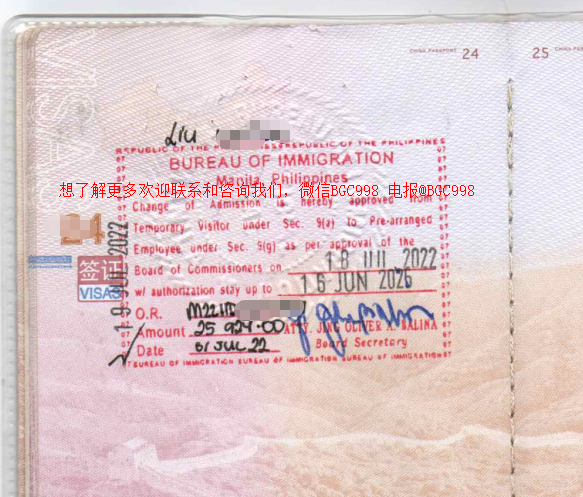 CHINA PASSPORT 24
25 CHINA PASSPORT
LIU
REPUBLIC OF THE REPUBLIC OF THE PHILIPPINES
BUREAU OF IMMIGRATION
Manila, Philippines
想了解更多欢迎联系和咨询我们，微信BGC998 电报@BGC998
Change of Admission is hereby approved from
Temporary Visitor under Sec. 9(a) to Pre-arranged
Employee under Sec. 9(g) as per approval of the
Board of Commissioners on 18 JUL 2022
w/ authorization stay up to 16 JUN 2026
O.R.
Amount 25 924.00 ATTY. JING OLIVER X. BALINA
Date JUL 22 Board Secretary
BUREAU OF IMMIGRATION BUREAU OF IMMIGRATION BUREAU OF IMMIGRATION
24
签证
VISAS
2022